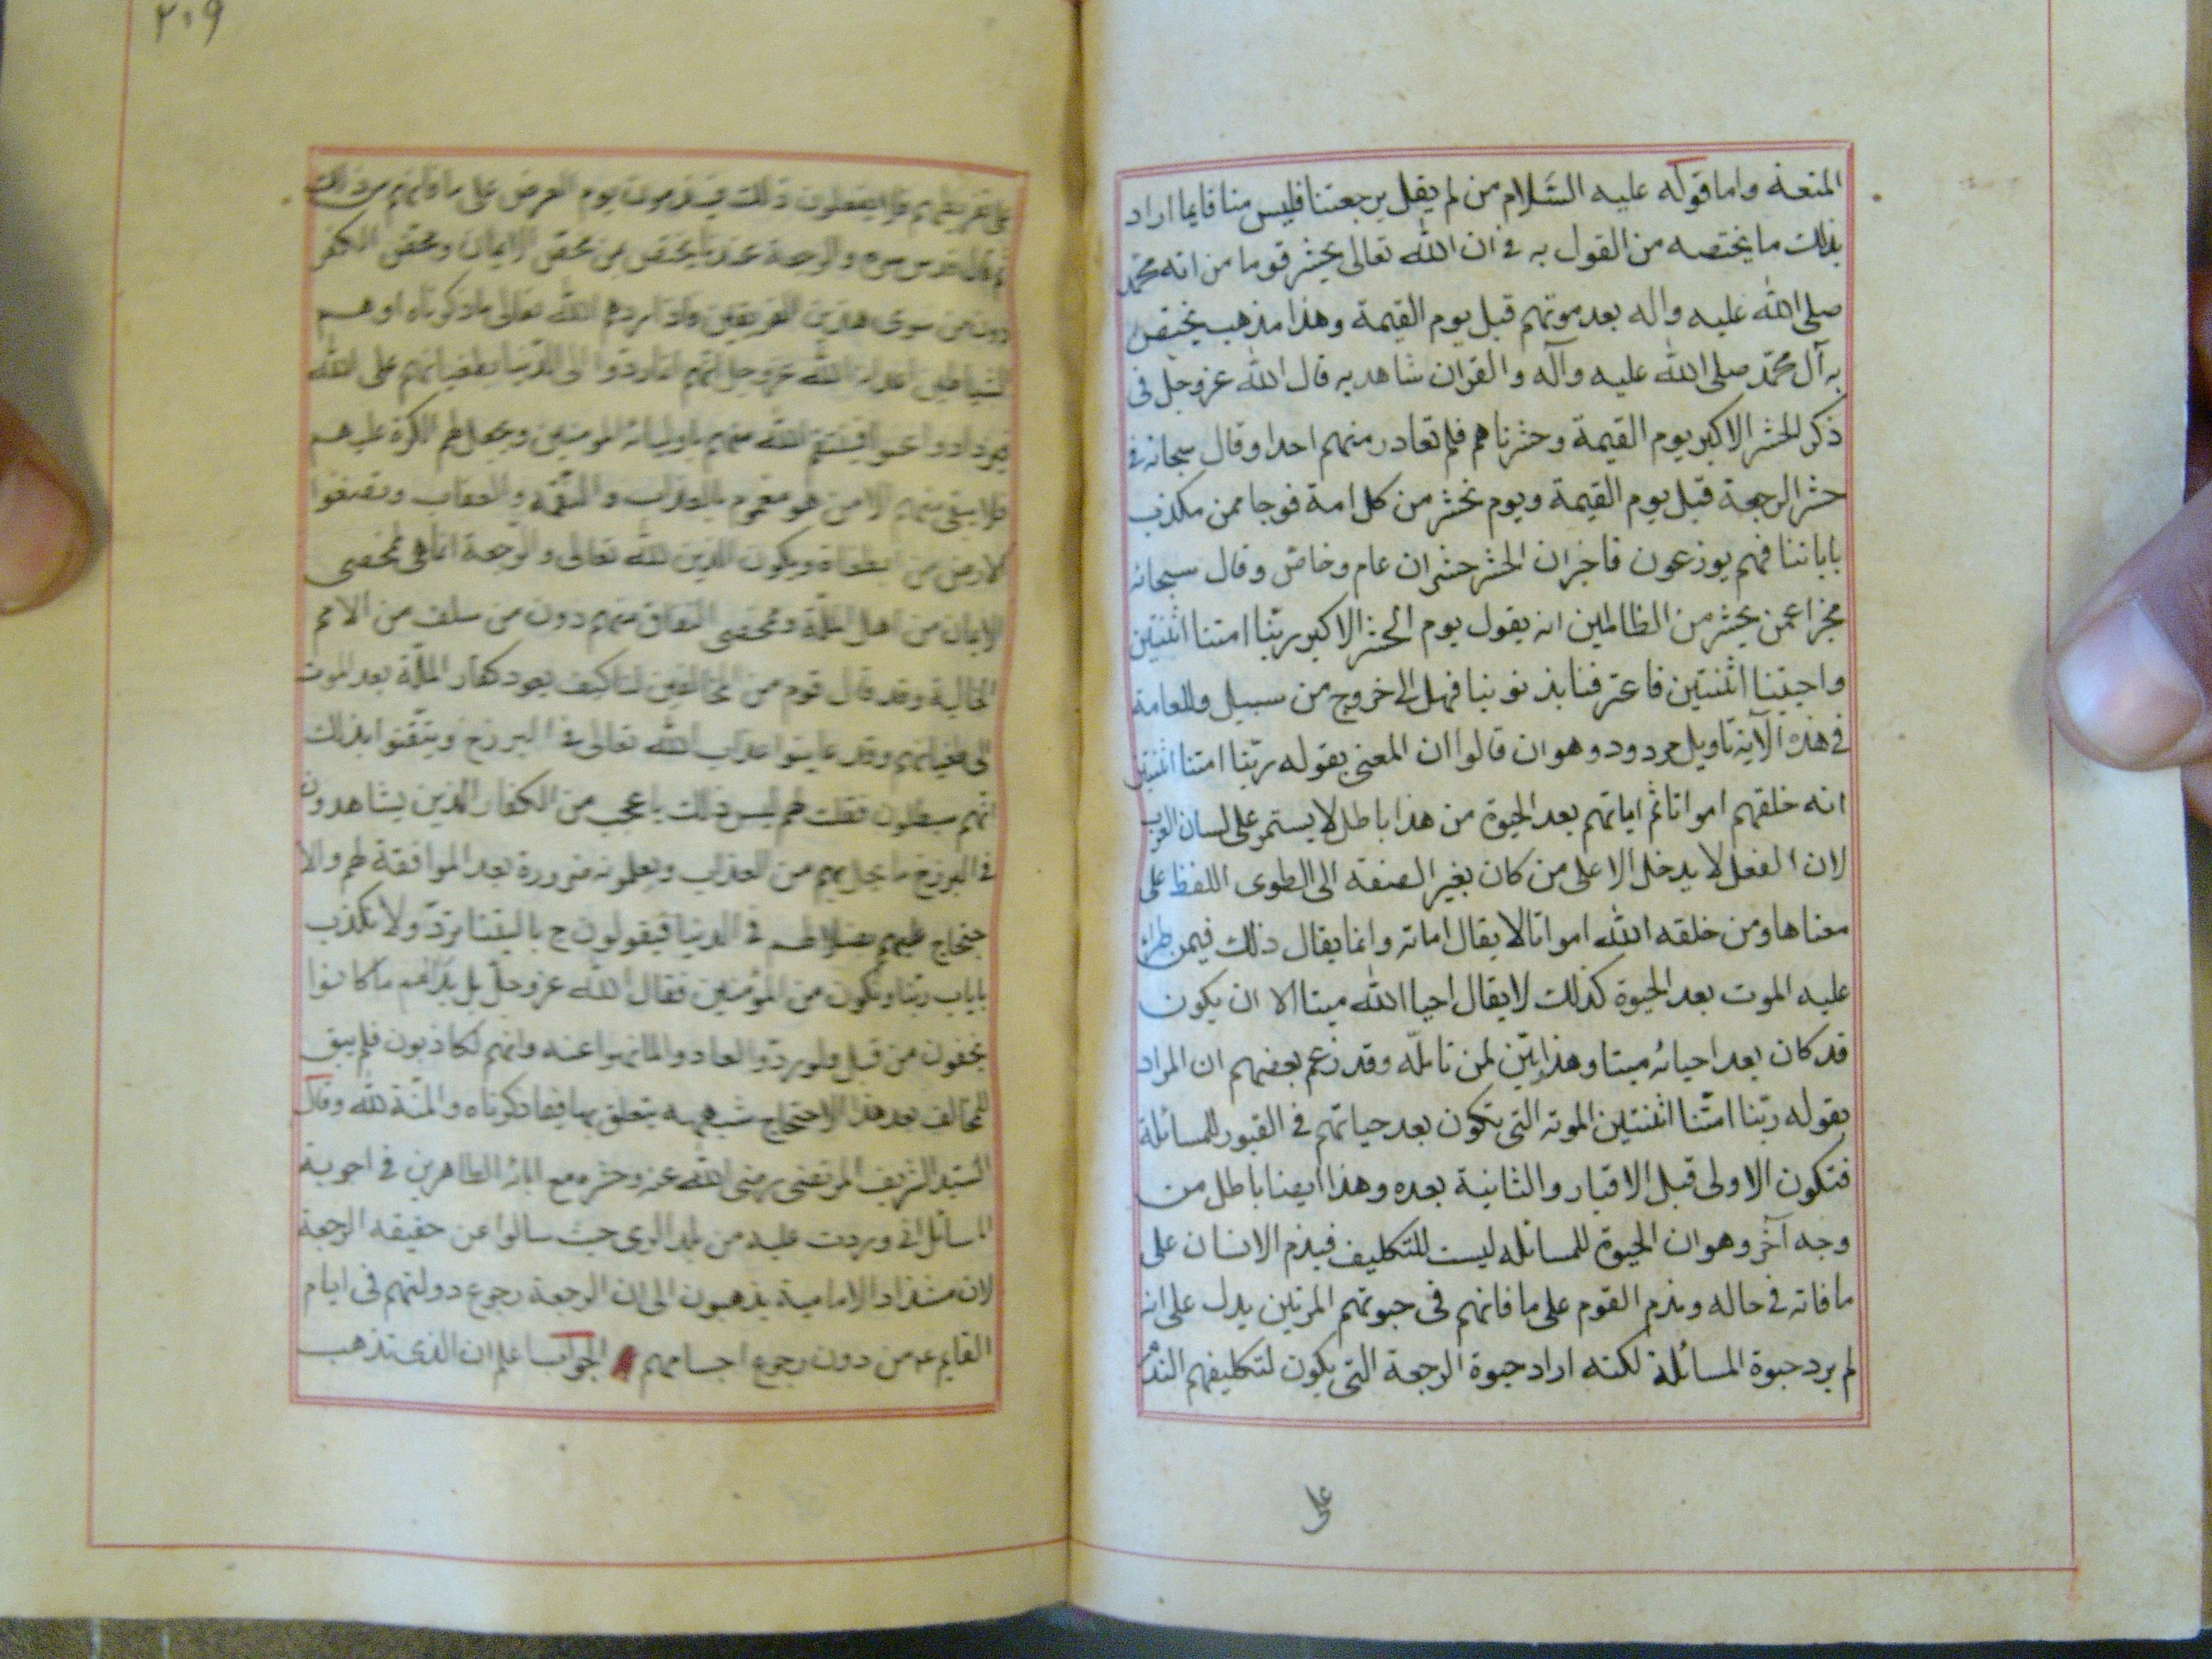 المتعة واما قوله عليه السَّلام من لم يقل برجعتنا فليس منا فانما اراد
بذلك ما يختصه من القول به في ان الله تعالى يحشر قوما من امة محمّد
صلى الله عليه واله بعد موتهم قبل يوم القيمة وهذا مذهب يختص
به آل محمّد صلى الله عليه وآله والقران شاهد به قال الله عز وجل فى
ذكر الحشر الاكبر يوم القيمة وحشرناهم فلم نغادر منهم احدا وقال سبحانه في
حشر الرجعة قبل يوم القيمة ويوم نحشر من كل امة فوجا ممن يكذب
باياتنا فهم يوزعون فاخبر ان الحشر حشران عام وخاص وقال سبحانه
مخبرا عمن يحشر من الظالمين انه يقول يوم الحشر الاكبر ربّنا امتنا اثنتين
واحييتنا اثنتين فاعترفنا بذنوبنا فهل الى خروج من سبيل وللعامة
في هذه الآية تاويل مردود وهو ان قالوا ان المعنى بقوله ربّنا امتنا اثنتين
انه خلقهم امواتا ثم اماتهم بعد الحيوة من هذا باطل لا يستمر على لسان العرب
لان الفعل لا يدخل الا على من كان بغير الصفة الى الطوى اللفظ على
معناها ومن خلقه الله امواتا لا يقال اماته وانما يقال ذلك فيمن طرا
عليه الموت بعد الحيوة كذلك لا يقال احيا الله ميتا الا ان يكون
قد كان بعد احيائه ميتا وهذا بيّن لمن تامّله وقد زعم بعضهم ان المراد
بقوله ربّنا امتّنا اثنتين الموتة التى تكون بعد حياتهم فى القبور للمسائلة
فتكون الاولى قبل الاقبار والثانية بعده وهذا ايضا باطل من
وجه آخر وهو ان الحيوة للمسائله ليست للتكليف فيندم الانسان على
ما فاته في حاله وندم القوم على ما فاتهم فى حيوتهم المرتين يدل على انه
لم يرد حيوة المسائلة لكنه اراد حيوة الرجعة التى يكون لتكليفهم الندم
على
٢٠٩
على تفريطهم فلا يفعلون ذلك فيندمون يوم العرض على ما فاتهم من ذلك
ثم قال قدس سره والرجعة عندنا يختص بمن محض الايمان ومحض الكفر
دون من سوى هذين الفريقين فاذا اراد الله تعالى ما ذكرناه اوهم
الشياطين اعداء الله عز وجل انهم انما ردوا الى الدنيا لطغيانهم على الله
فيزدادوا عتوا فينتقم الله منهم باوليائه المؤمنين ويجعل لهم الكرة عليهم
فلا يبقى منهم الا من هو مغموم بالعذاب والنقمة والعقاب وتصفوا
الارض من الطغاة ويكون الدين لله تعالى والرجعة انما هى لمحضى
الايمان من اهل الملّة ومحضى النفاق منهم دون من سلف من الامم
الخالية وقد قال قوم من المخالفين لنا كيف يعود كفار الملّة بعد الموت
الى طغيانهم وقد عاينوا عذاب الله تعالى في البرزخ وتيقّنوا بذلك
انهم مبطلون فقلت لهم ليس ذلك باعجب من الكفار الذين يشاهدون
في البرزخ ما يحل بهم من العذاب ويعلمونه ضرورة بعد الموافقة لهم والا
حتجاج عليهم بضلالهم في الدنيا فيقولون ح ياليتنا نردّ ولا نكذب
بايات ربّنا ونكون من المؤمنين فقال الله عز وجل بل بدا لهم ما كانوا
يخفون من قبل ولو ردّوا لعادوا لما نهوا عنه وانهم لكاذبون فلم يبق
للمخالف بعد هذا الاحتجاج شبهة يتعلق بها فيما ذكرناه والمنّة لله وقال
السيّد الشريف المرتضى رضى الله عنه وحشره مع ابائه الطاهرين في اجوبة
المسائل التى وردت عليه من بلد الرى حيث سالوا عن حقيقة الرجعة
لان شذاذ الامامية يذهبون الى ان الرجعة رجوع دولتهم فى ايام
القايم ع من دون رجوع اجسامهم الجواب اعلم ان الذى تذهب